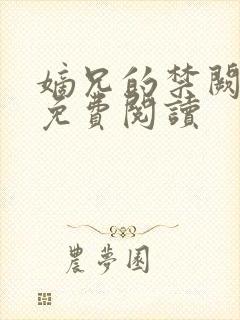 嫡兄的禁闕
免費閱讀
農夢園